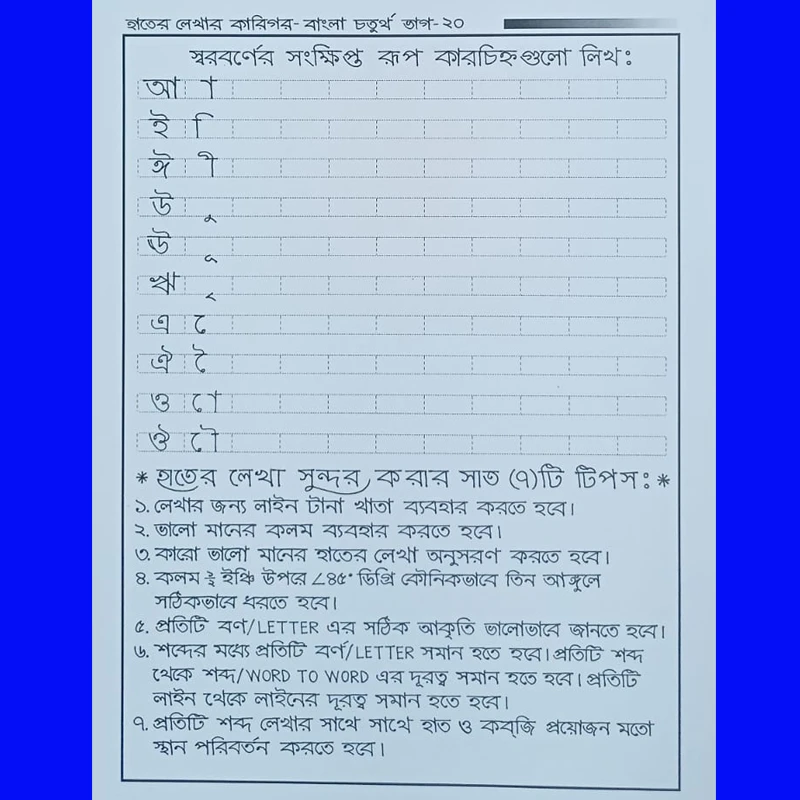 হাতের লেখার কারিগর- বাংলা চতুর্থ ভাগ-২০
স্বরবর্ণের সংক্ষিপ্ত রূপ কারচিহ্নগুলো লিখ:
আ া
ই ি
ঈ ী
উ ু
ঊ ূ
ঋ ৃ
এ ে
ঐ ৈ
ও ো
ঔ ৌ
* হাতের লেখা সুন্দর করার সাত (৭)টি টিপস: *
১. লেখার জন্য লাইন টানা খাতা ব্যবহার করতে হবে।
২. ভালো মানের কলম ব্যবহার করতে হবে।
৩. কারো ভালো মানের হাতের লেখা অনুসরণ করতে হবে।
৪. কলম ইঞ্চি উপরে ∠৪৫° ডিগ্রি কৌনিকভাবে তিন আঙ্গুলে
সঠিকভাবে ধরতে হবে।
৫. প্রতিটি বর্ণ/LETTER এর সঠিক আকৃতি ভালোভাবে জানতে হবে।
৬. শব্দের মধ্যে প্রতিটি বর্ণ/LETTER সমান হতে হবে। প্রতিটি শব্দ
থেকে শব্দ/WORD TO WORD এর দূরত্ব সমান হতে হবে। প্রতিটি
লাইন থেকে লাইনের দূরত্ব সমান হতে হবে।
৭. প্রতিটি শব্দ লেখার সাথে সাথে হাত ও কব্জি প্রয়োজন মতো
স্থান পরিবর্তন করতে হবে।